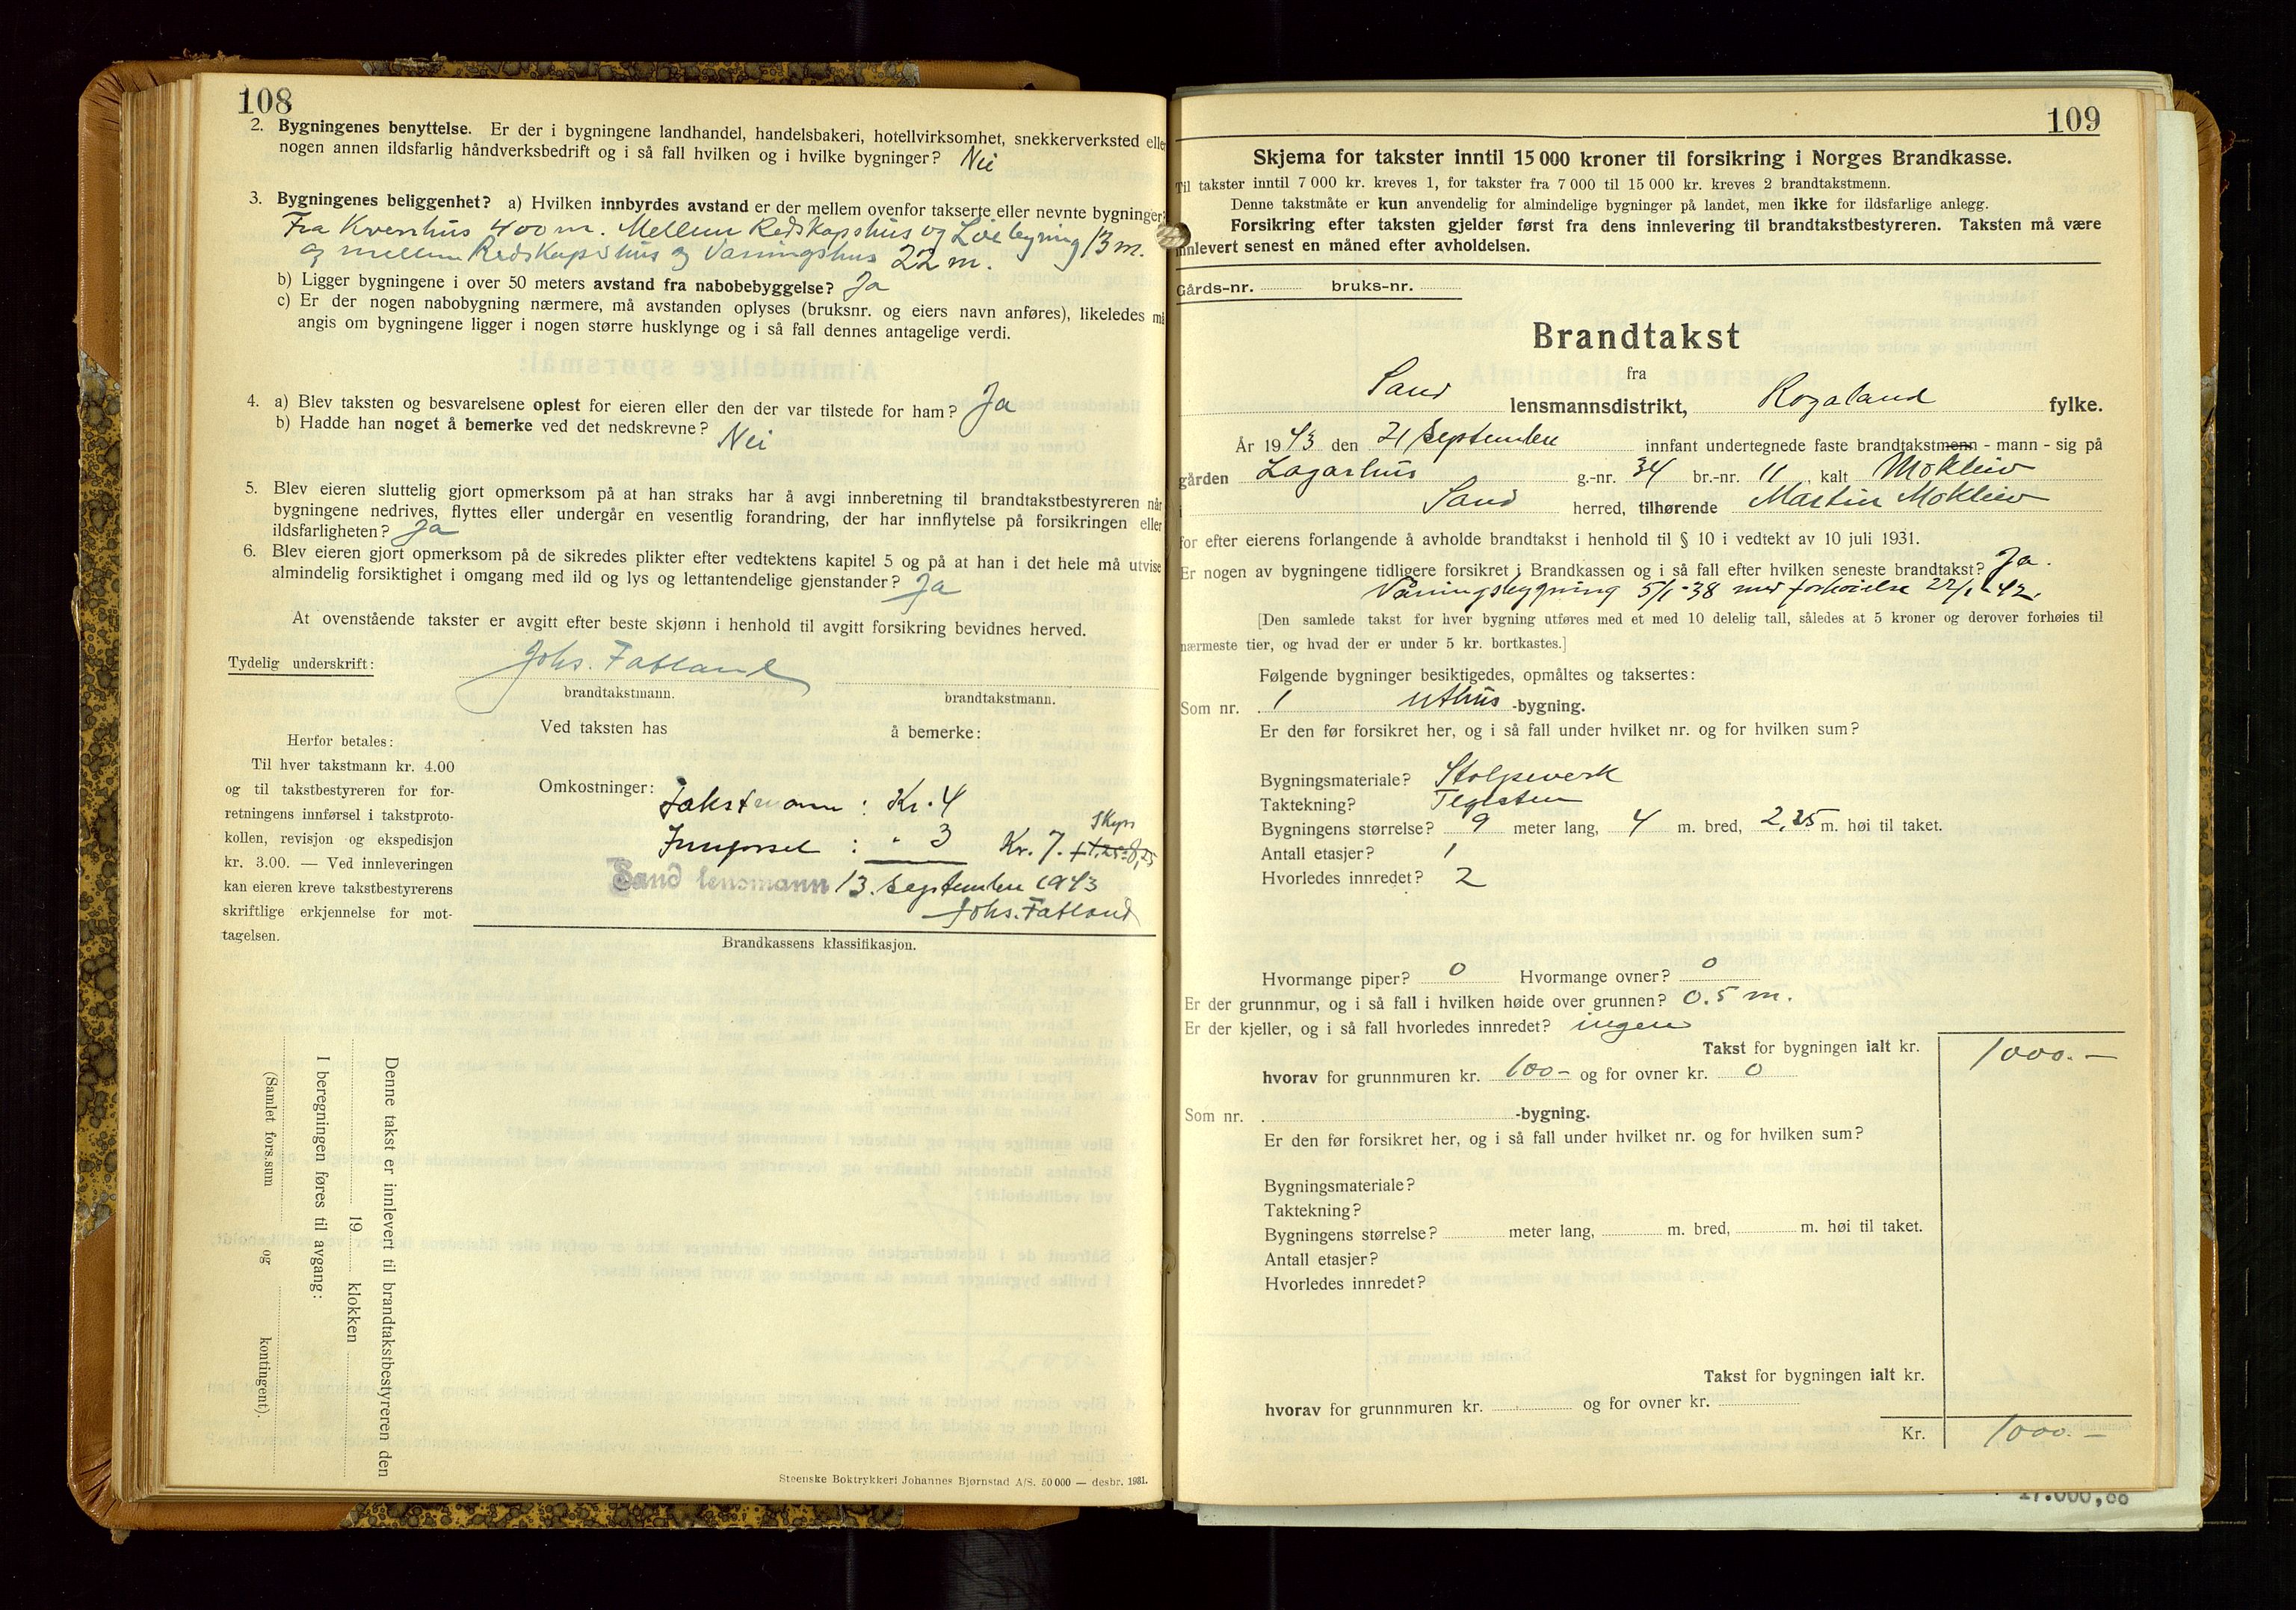 108
2. Bygningenes benyttelse. Er der i bygningene landhandel, handelsbakeri, hotellvirksomhet, snekkerverksted eller
nogen annen ildsfarlig håndverksbedrift og i så fall hvilken og i hvilke bygninger? Nei
3. Bygningenes beliggenhet? a) Hvilken innbyrdes avstand er der mellem ovenfor takserte eller nevnte bygninger?
Fra Kvernhus 400 m. Mellem Redskapshus og Löebygning 13 m.
og mellem Redskapshus og Vaningshus 22 m.
b) Ligger bygningene i over 50 meters avstand fra nabobebyggelse? Ja
c) Er der nogen nabobygning nærmere, må avstanden oplyses (bruksnr. og eiers navn anføres), likeledes må
angis om bygningene ligger i nogen større husklynge og i så fall dennes antagelige verdi.
4. a) Blev taksten og besvarelsene oplest for eieren eller den der var tilstede for ham? Ja
b) Hadde han noget å bemerke ved det nedskrevne? Nei
5. Blev eieren sluttelig gjort opmerksom på at han straks har å avgi innberetning til brandtakstbestyreren når
bygningene nedrives, flyttes eller undergår en vesentlig forandring, der har innflytelse på forsikringen eller
ildsfarligheten? Ja
6. Blev eieren gjort opmerksom på de sikredes plikter efter vedtektens kapitel 5 og på at han i det hele må utvise
almindelig forsiktighet i omgang med ild og lys og lettantendelige gjenstander? Ja
At ovenstående takster er avgitt efter beste skjønn i henhold til avgitt forsikring bevidnes herved.
Tydelig underskrift: Johs. Fatland
brandtakstmann. brandtakstmann.
Ved taksten has å bemerke:
Herfor betales:
Til hver takstmann kr. 4.00
og til takstbestyreren for for-
retningens innførsel i takstproto-
kollen, revisjon og ekspedisjon
kr. 3.00. — Ved innleveringen
kan eieren kreve takstbestyrerens
skriftlige erkjennelse for mot-
tagelsen.
Omkostninger: Takstmann : Kr. 4
Skyss
Innførsel : " 3 Kr. 7. + 1,25 = 8,25
Sand lensmann 13. september 1943
Johs. Fatland
Brandkassens klassifikasjon.
Denne takst er innlevert til brandtakstbestyreren den
19 klokken
I beregningen føres til avgang:
(Samlet fors.sum og kontingent).
Steenske Boktrykkeri Johannes Bjørnstad A/S. 50 000 — desbr. 1931.
109
Skjema for takster inntil 15 000 kroner til forsikring i Norges Brandkasse.
Til takster inntil 7 000 kr. kreves 1, for takster fra 7 000 til 15 000 kr. kreves 2 brandtakstmenn.
Denne takstmåte er kun anvendelig for almindelige bygninger på landet, men ikke for ildsfarlige anlegg.
Forsikring efter taksten gjelder først fra dens innlevering til brandtakstbestyreren. Taksten må være
innlevert senest en måned efter avholdelsen.
Gårds-nr. bruks-nr.
Brandtakst
fra
Sand lensmannsdistrikt, Rogaland fylke.
År 1943 den 21 september innfant undertegnede faste brandtakstmenn - mann - sig på
gården Lagarhus g.-nr. 34 br.-nr. 11, kalt Mokleiv
i Sand herred, tilhørende Martin Mokleiv
for efter eierens forlangende å avholde brandtakst i henhold til § 10 i vedtekt av 10 juli 1931.
Er nogen av bygningene tidligere forsikret i Brandkassen og i så fall efter hvilken seneste brandtakst? Ja.
Våningsbygning 5/1-38 med forhöielse 22/1 42.
[Den samlede takst for hver bygning utføres med et med 10 delelig tall, således at 5 kroner og derover forhøies til
nærmeste tier, og hvad der er under 5 kr. bortkastes.]
Følgende bygninger besiktigedes, opmåltes og taksertes:
Som nr. 1 uthus -bygning.
Er den før forsikret her, og i så fall under hvilket nr. og for hvilken sum?
Bygningsmateriale? Stolpeverk
Taktekning? Teglsten
Bygningens størrelse? 9 meter lang, 4 m. bred, 2,25 m. høi til taket.
Antall etasjer? 1
Hvorledes innredet? 2
Hvormange piper? 0 Hvormange ovner? 0
Er der grunnmur, og i så fall i hvilken høide over grunnen? 0.5 m.
Er der kjeller, og i så fall hvorledes innredet? ingen
Takst for bygningen ialt kr. 1000.-
hvorav for grunnmuren kr. 100- og for ovner kr. 0
Som nr. -bygning.
Er den før forsikret her, og i så fall under hvilket nr. og for hvilken sum?
Bygningsmateriale?
Taktekning?
Bygningens størrelse? meter lang, m. bred, m. høi til taket.
Antall etasjer?
Hvorledes innredet?
Takst for bygningen ialt kr.
hvorav for grunnmuren kr. og for ovner kr.
Kr. 1000.-